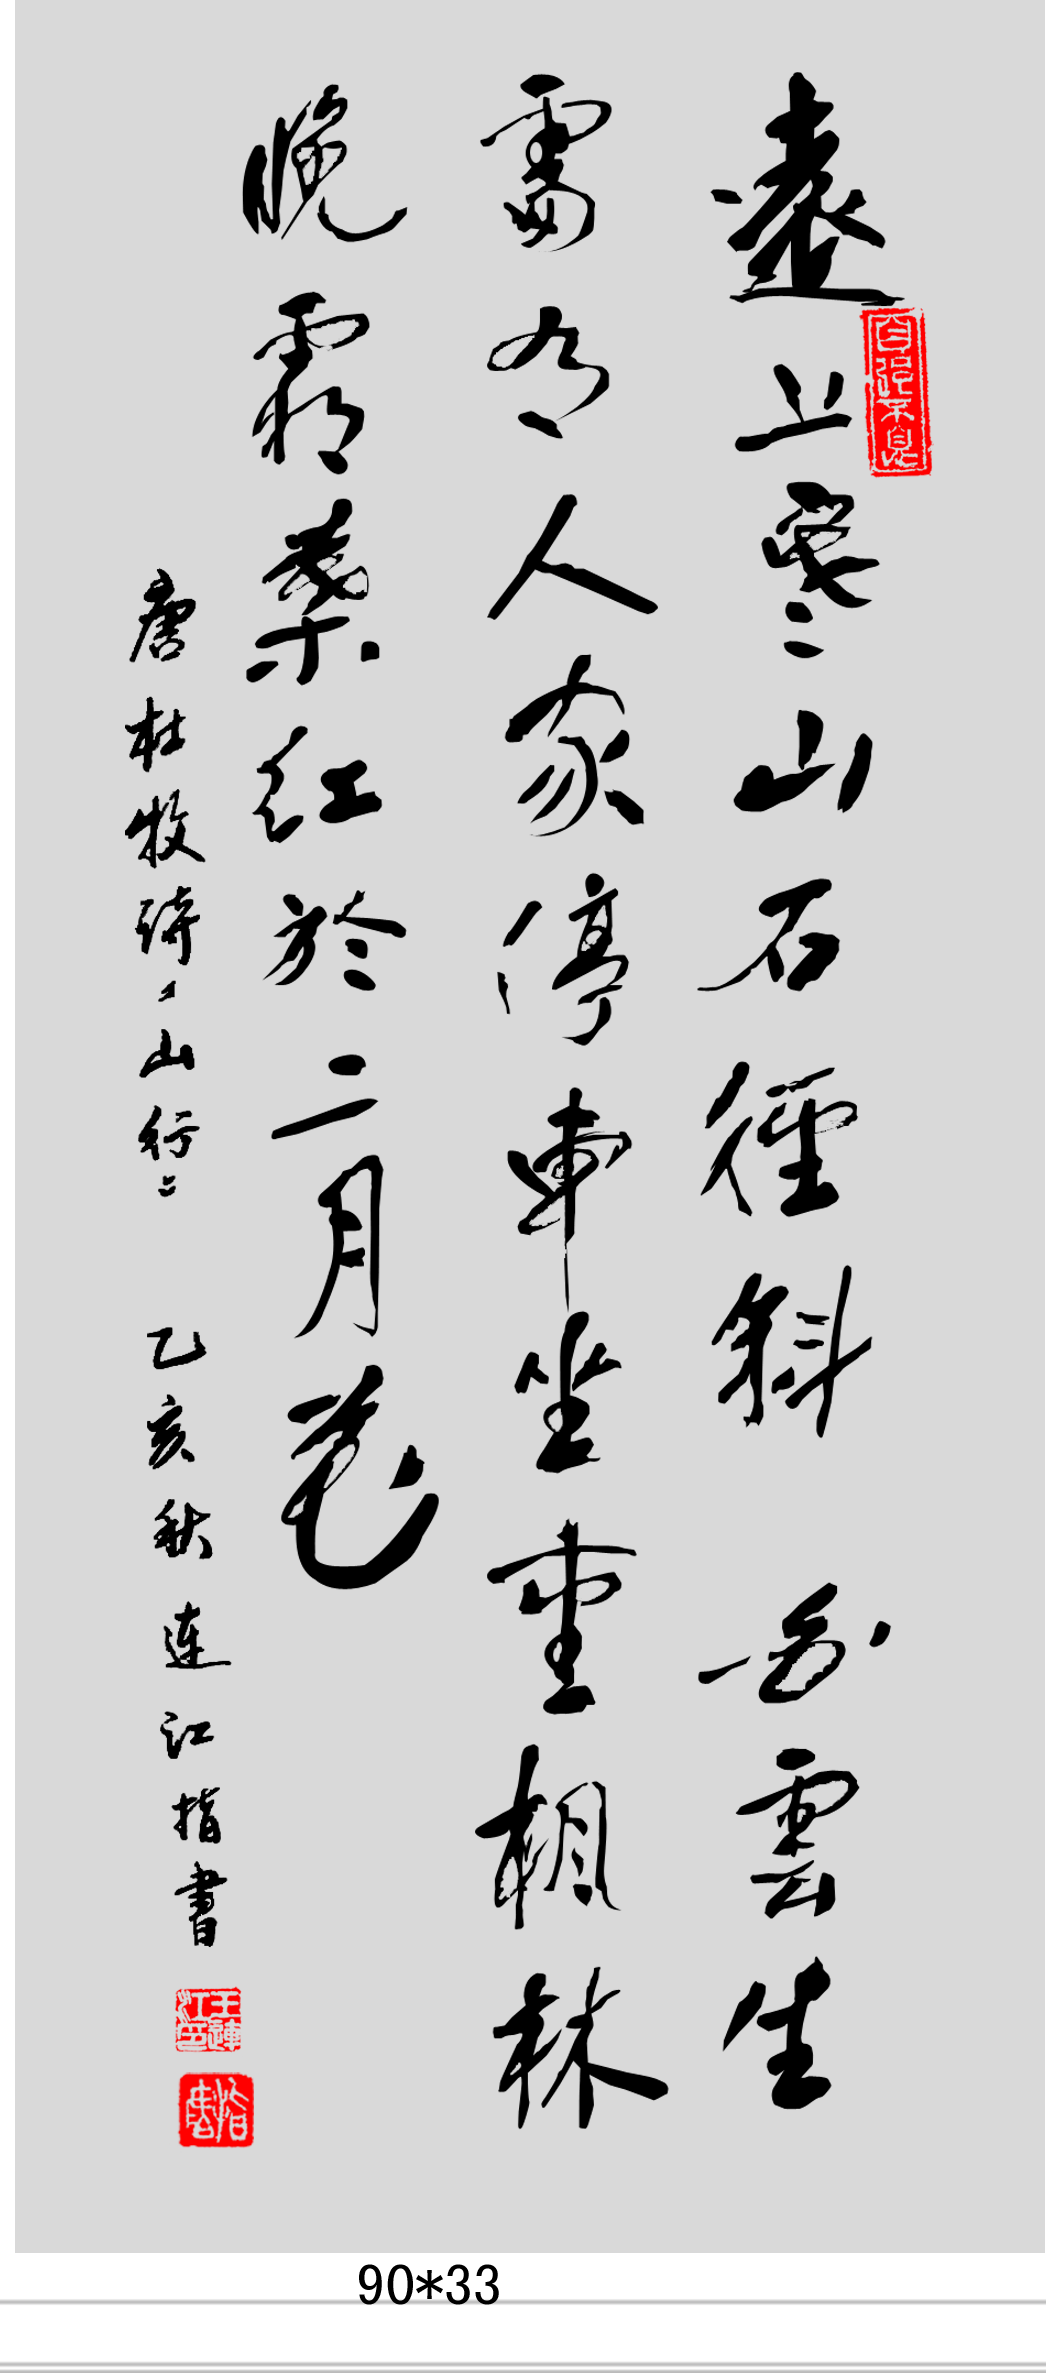 遠上寒山石徑斜白雲生
處有人家停車坐愛楓林
晚霜葉紅於二月花
唐杜牧詩"山行" 乙亥秋连江指書
王連江印
指書
90*33